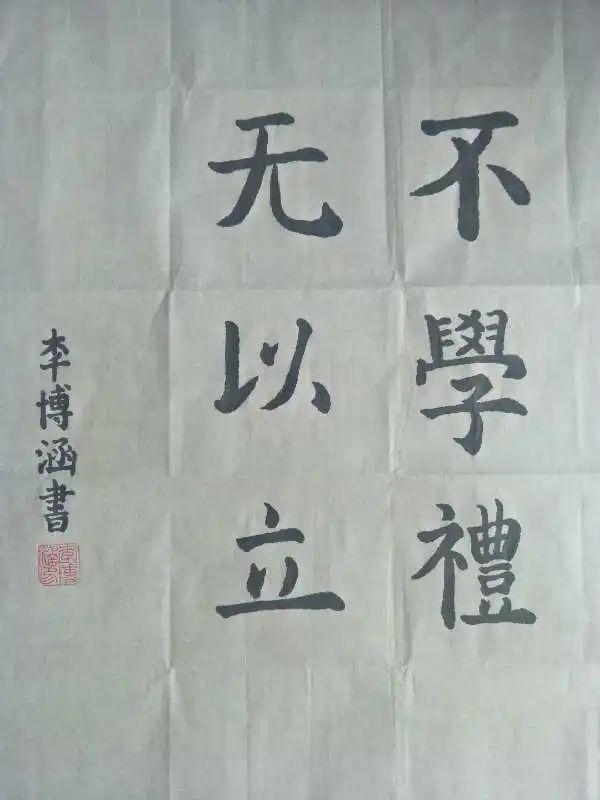 不學禮
无以立
李博涵書